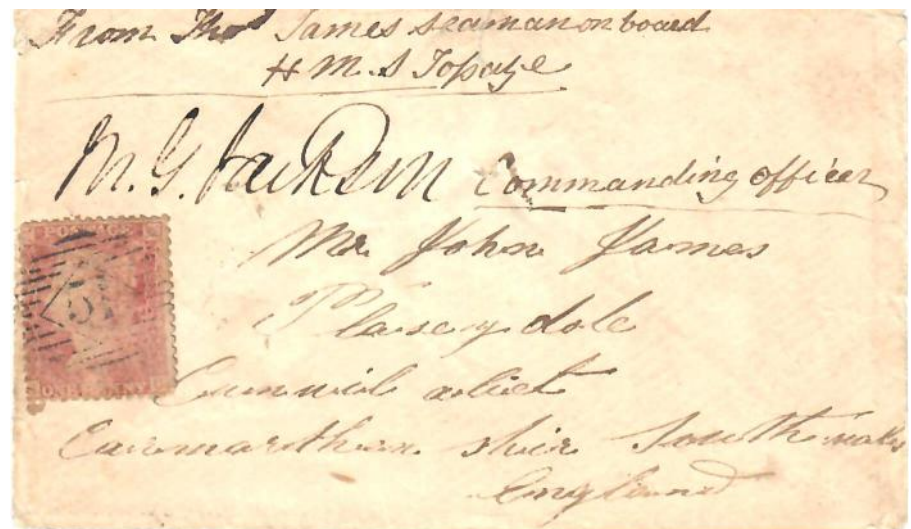 From Thos James seaman on board
H M. S Topaze
M. G. Jackson Commanding officer
Mr John James
Plas y dole
Cunwil
Carmarthen shire South wales
England
POSTAGE
ONE PENNY